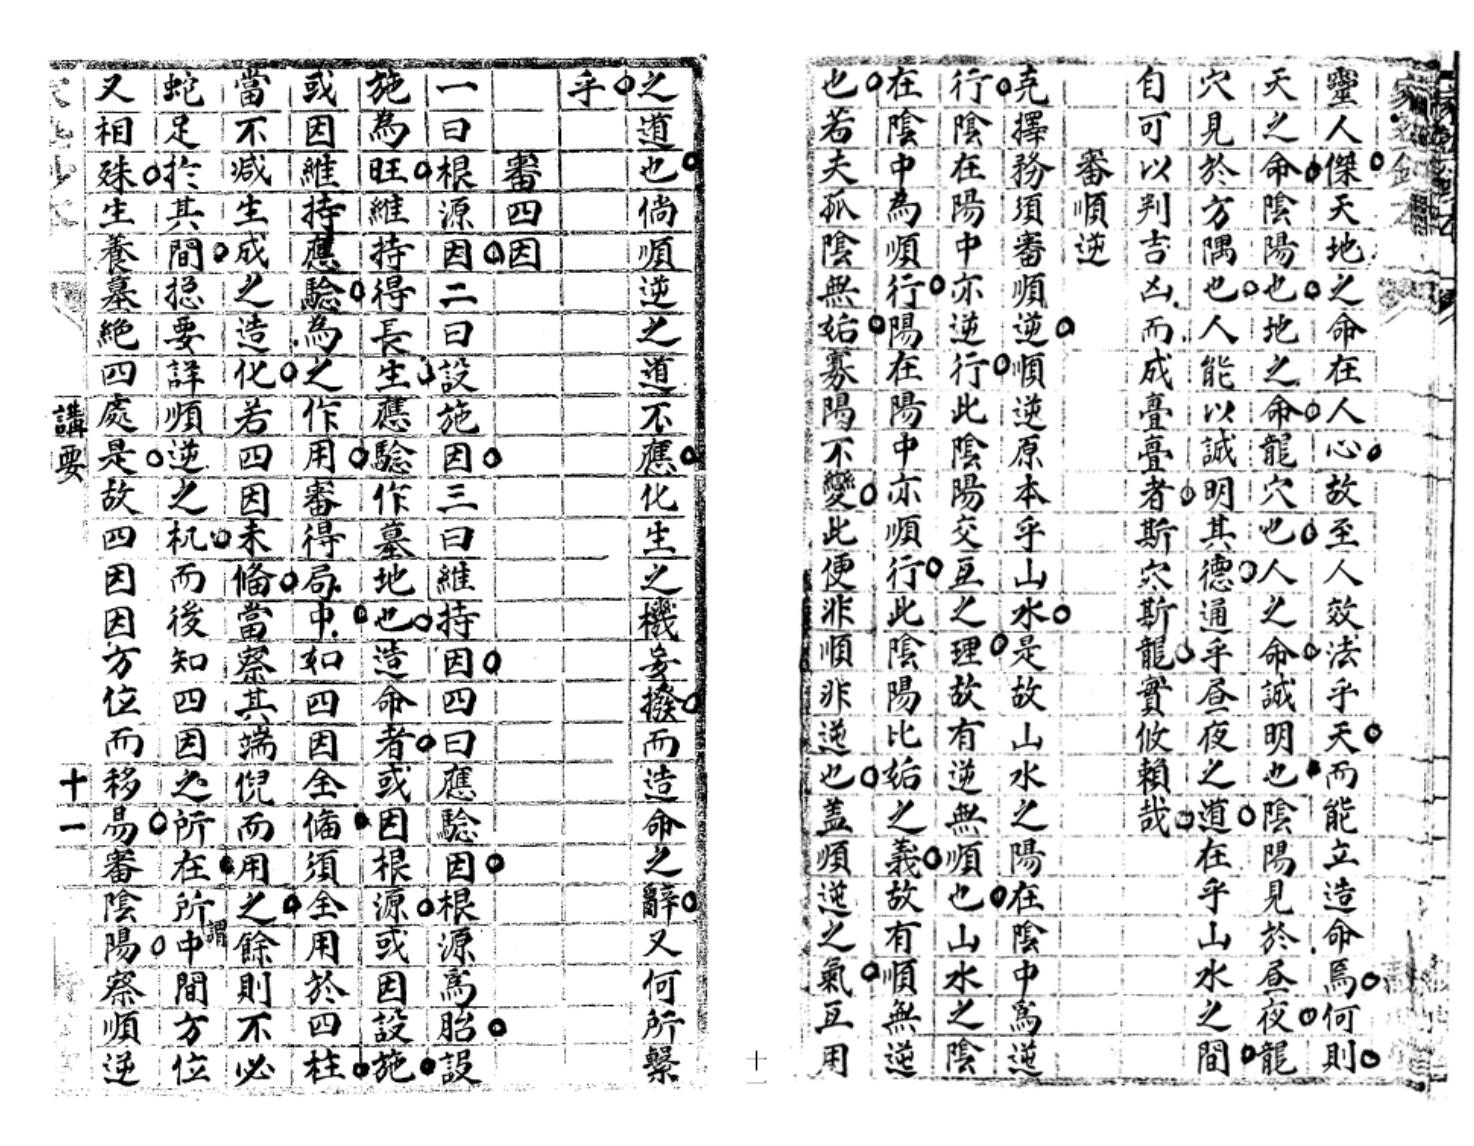 靈人傑天地之命在人心故至人效法乎天而能立造命焉何則
天之命陰陽也地之命龍穴也人之命誠明也陰陽見於昼夜龍
穴見於方隅也人能以誠明其德通乎昼夜之道在乎山水之間
自可以判吉凶而成亹亹者斯穴斯龍實攸賴哉
審順逆
尭擇務須審順逆順逆原本乎山水是故山水之陽在陰中爲逆
行陰在陽中亦逆行此陰陽交互之理故有逆無順也山水之陰
在陰中為順行陽在陽中亦順行此陰陽比姤之義故有順無逆
也若夫孤陰無姤寡陽不變此便非順非逆也盖順逆之氣互用
之道也倘順逆之道不應化生之機妄撥而造命之辭又何所繫
乎
審四因
一曰根源因二曰設施因三曰維持因四曰應驗因根源爲胎設
施為旺維持得長生應驗作墓地也造命者或因根源或因設施
或因維持應驗為之作用審得局中如四因全俻須全用於四柱
當不减生成之造化若四因未俻當察其端倪而用之餘則不必
蛇足扵其間揔要詳順逆之机而後知四因之所在所謂中間方位
又相殊生養墓絶四處是故四因因方位而移昜審陰陽察順逆
講要
十一
十一